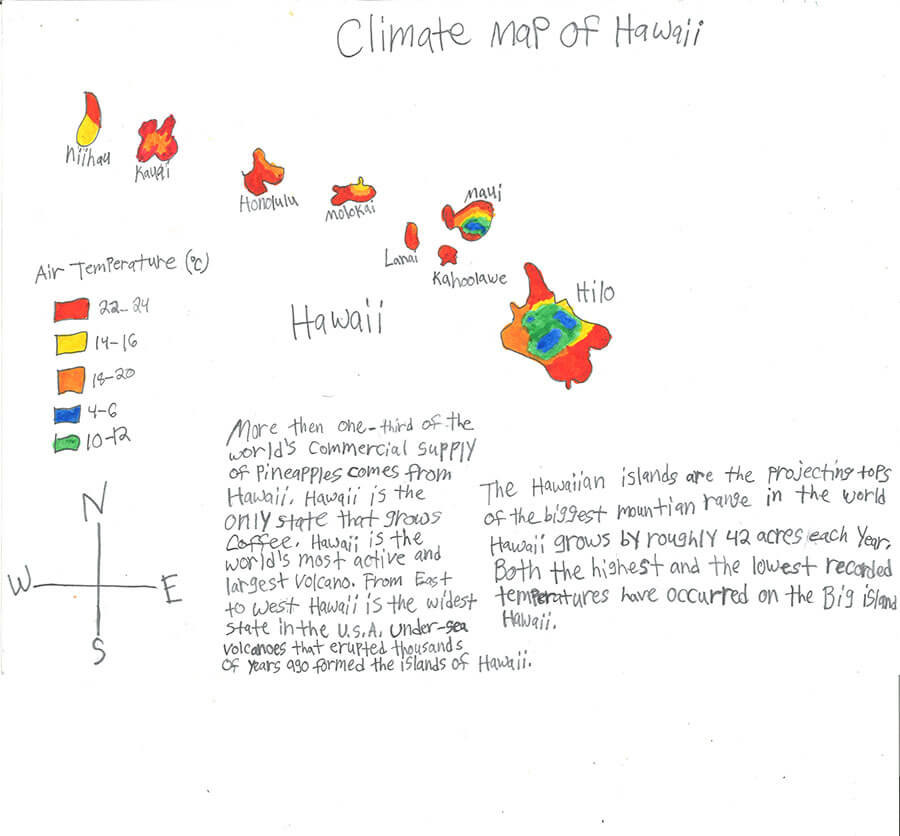 Climate Map of Hawaii
Niihau
Kauai
Honolulu
Molokai
Maui
Lanai
Kahoolawe
Hilo
Hawaii
Air Temperature (°C)
22-24
14-16
18-20
4-6
10-12
N
W
E
S
More then one-third of the
world's commercial supply
of Pineapples comes from
Hawaii. Hawaii is the
only state that grows
Coffee. Hawaii is the
world's most active and
largest volcano. From East
to west Hawaii is the widest
state in the U.S.A. Under-sea
volcanoes that erupted thousands
of years ago formed the islands of Hawaii.
The Hawaiian islands are the projecting tops
of the biggest mountian range in the world
Hawaii grows by roughly 42 acres each year.
Both the highest and the lowest recorded
temperatures have occurred on the Big island
Hawaii.